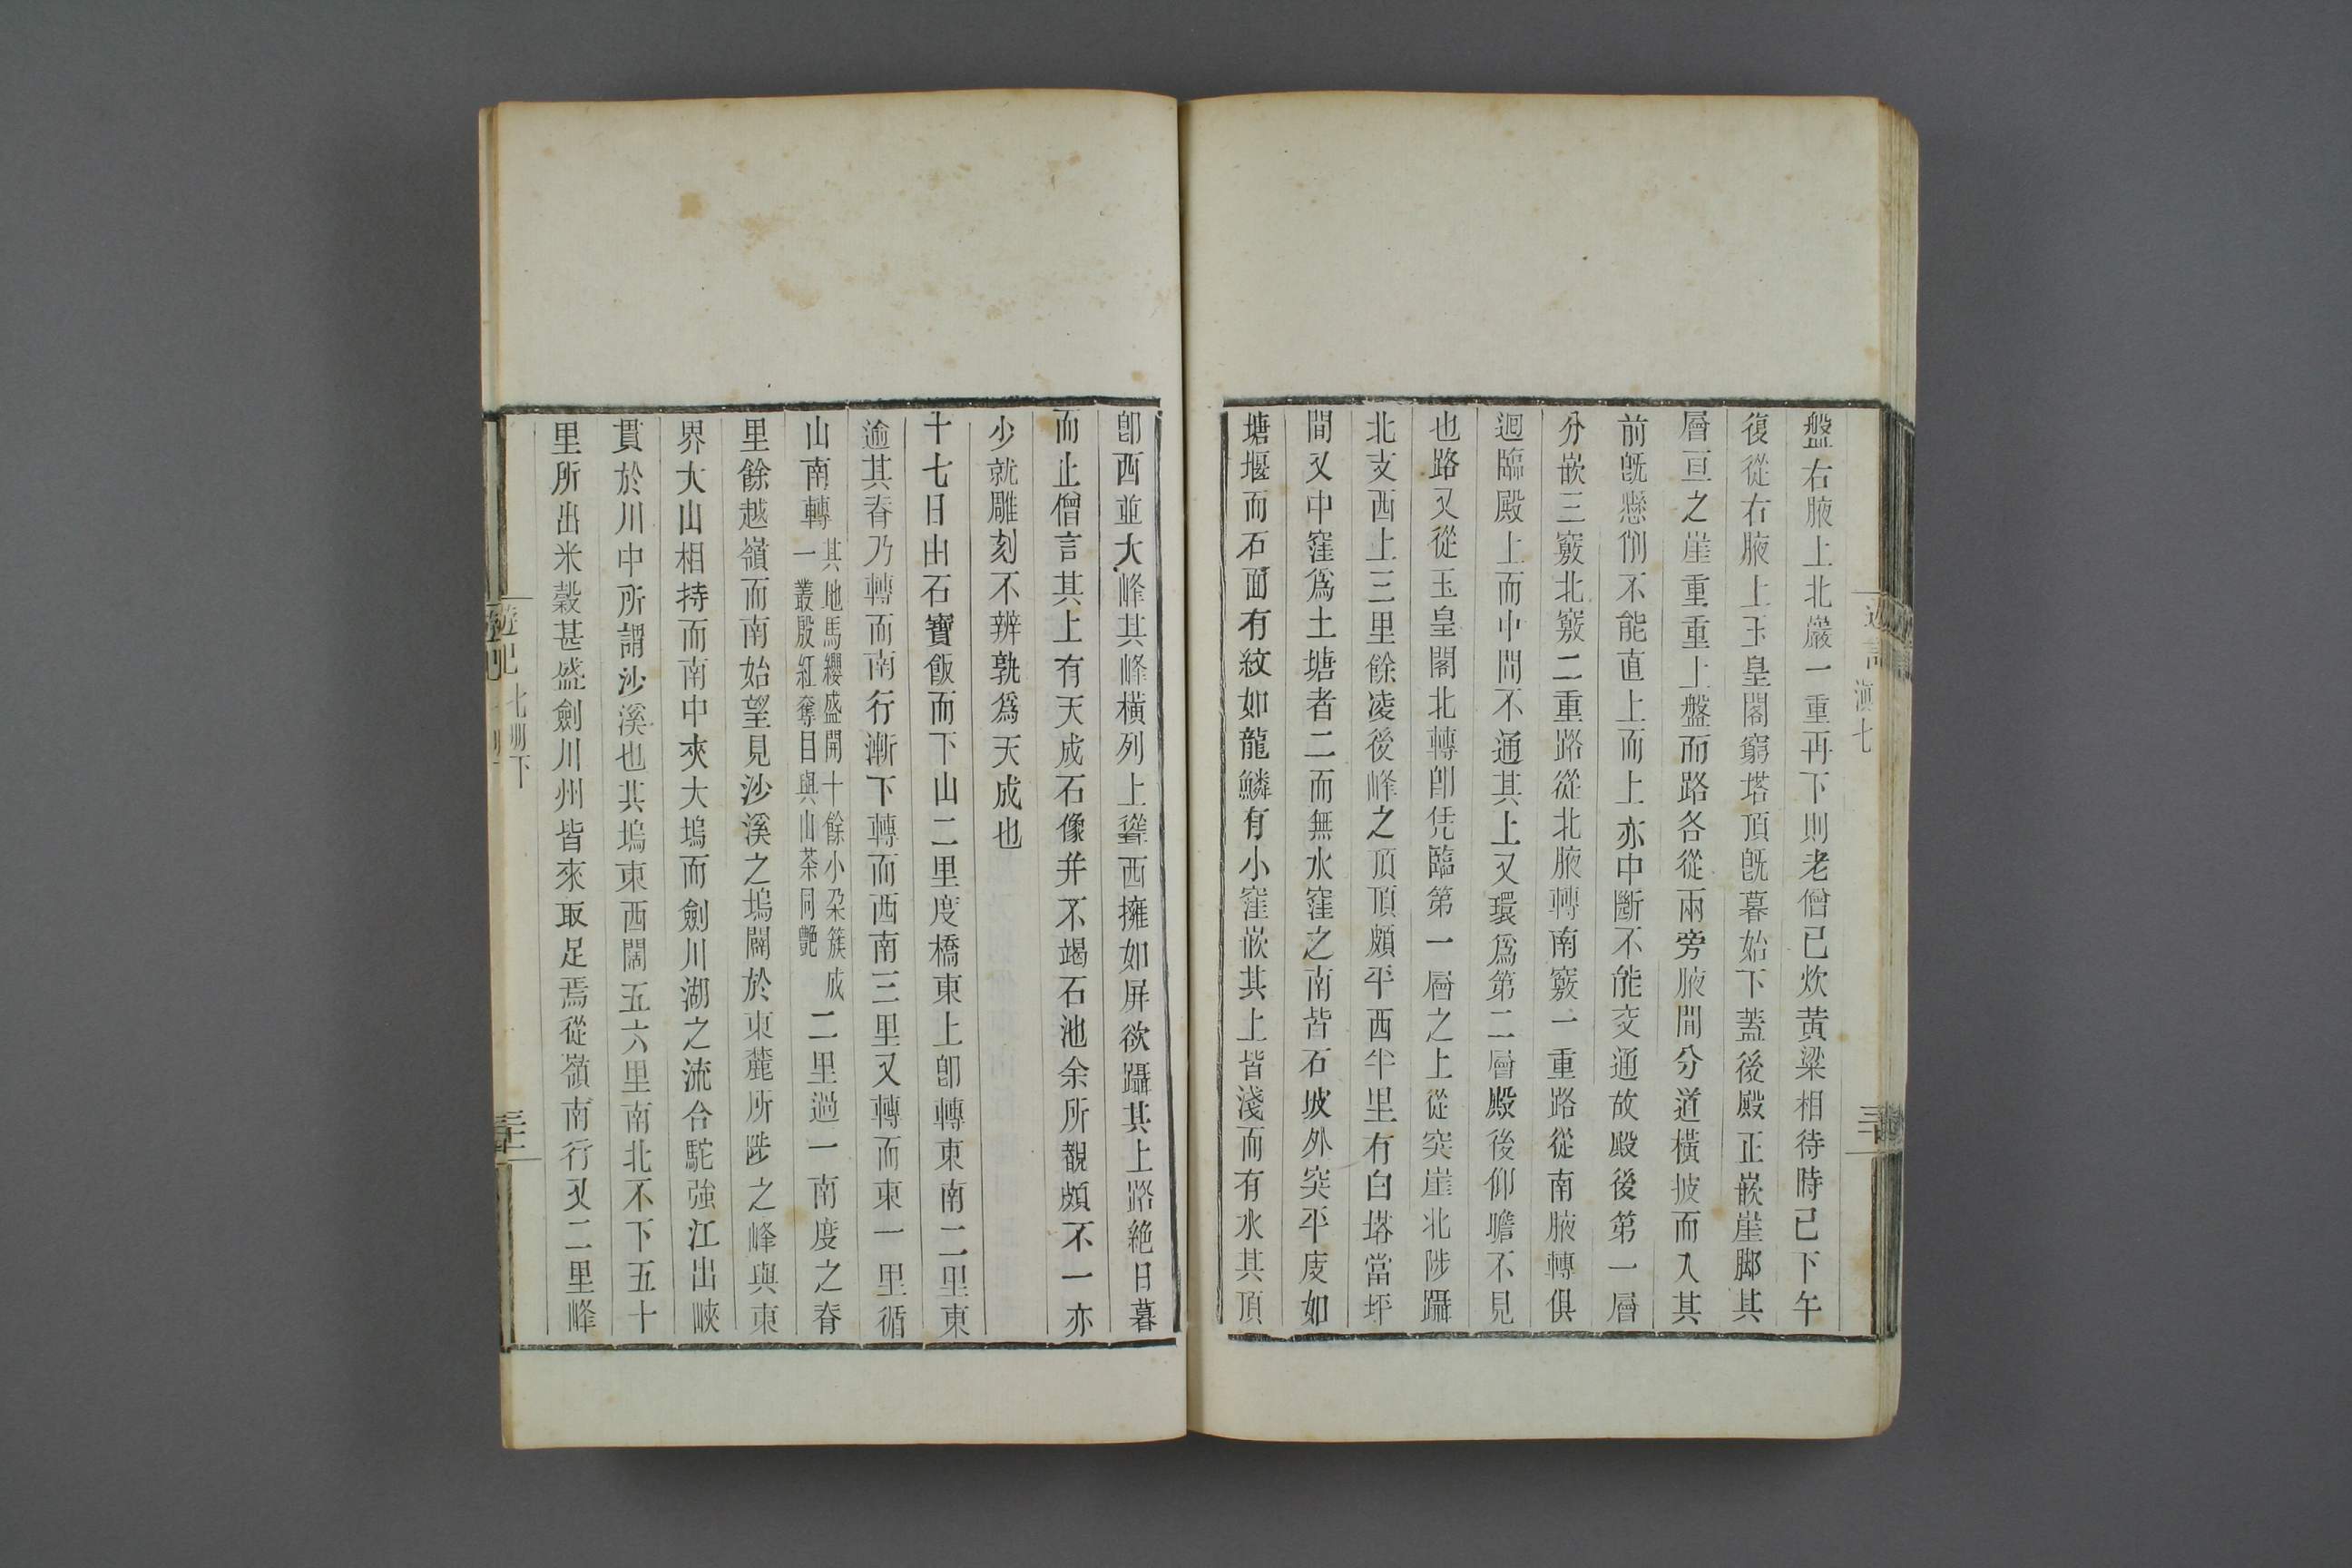 盤右腋上北巖一重再下則老僧已炊黃粱相待時已下午
復從右腋上玉皇閣窮塔頂旣暮始下蓋後殿正嵌崖脚其
層亘之崖重重上盤而路各從兩旁腋間分道橫披而入其
前旣懸削不能直上而上亦中斷不能交通故殿後第一層
分嵌三竅北竅二重路從北腋轉南竅一重路從南腋轉俱
迴臨殿上而中間不通其上又環爲第二層殿後仰瞻不見
也路又從玉皇閣北轉卽凭臨第一層之上從突崖北陟躡
北支西上三里餘凌後峰之頂頂頗平西半里有白塔當坪
間又中窪爲土塘者二而無水窪之南皆石坡外突平庋如
塘堰而石面有紋如龍鱗有小窪嵌其上皆淺而有水其頂
卽西並大峰其峰橫列上聳西擁如屏欲躡其上路絶日暮
而止僧言其上有天成石像并不竭石池余所覩頗不一亦
少就雕刻不辨孰爲天成也
十七日由石寶飯而下山二里度橋東上卽轉東南二里東
逾其脊乃轉而南行漸下轉而西南三里又轉而東一里循
山南轉其地馬纓盛開十餘小朶簇成一叢殷紅奪目與山茶同艷二里過一南度之脊
里餘越嶺而南始望見沙溪之塢闢於東麓所陟之峰與東
界大山相持而南中夾大塢而劍川湖之流合駝強江出峽
貫於川中所謂沙溪也其塢東西闊五六里南北不下五十
里所出米穀甚盛劍川州皆來取足焉從嶺南行又二里峰
遊記
七册下
滇七